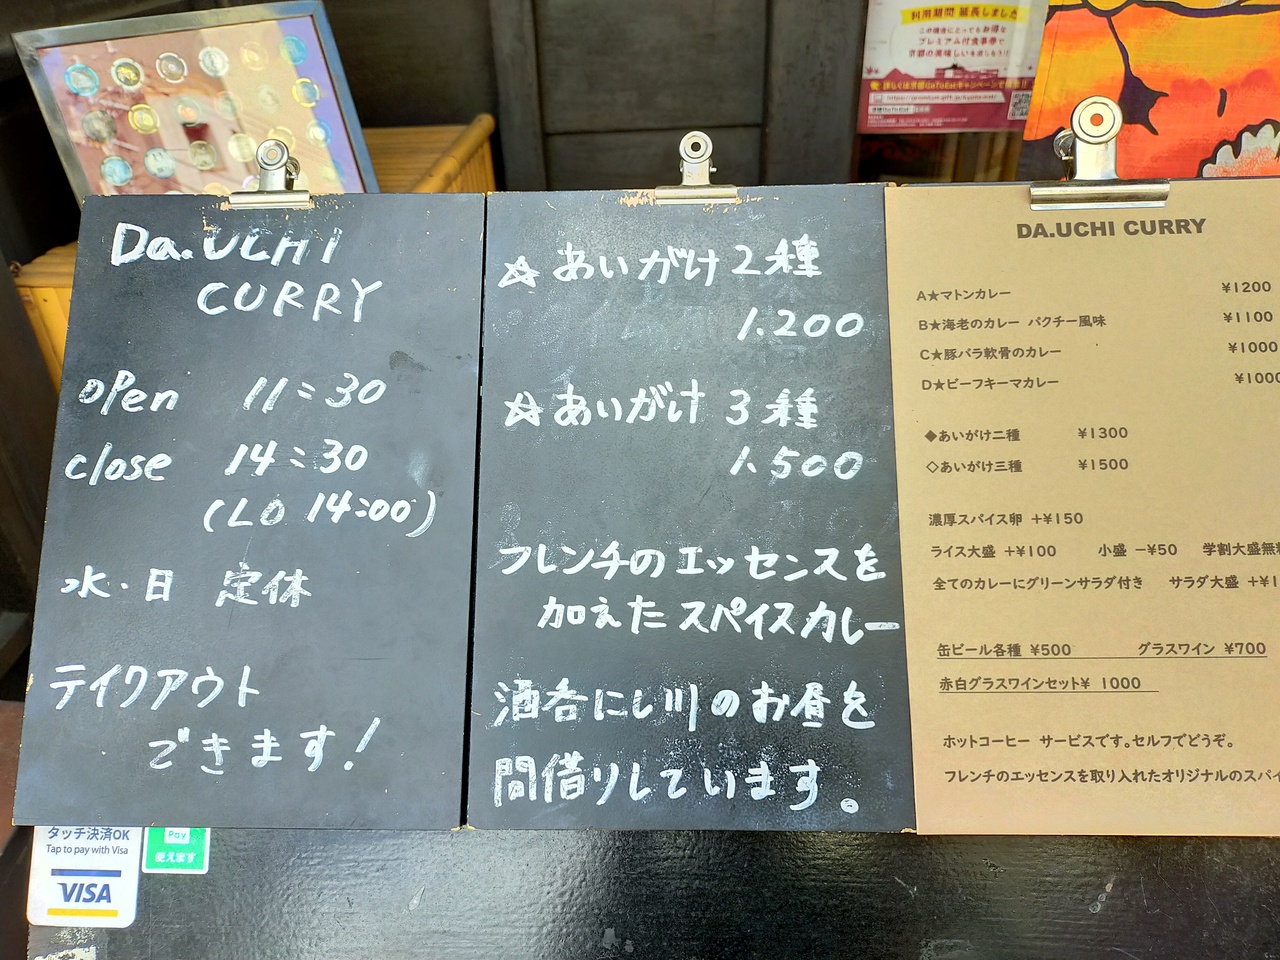 利用期間 延長しました
プレミアム付食事券で
Da.UCHI
CURRY
open 11:30
close 14:30
(LO 14:00)
水・日 定休
テイクアウト
できます!
☆あいがけ2種
1.200
☆あいがけ3種
1.500
フレンチのエッセンスを
加えたスパイスカレー
酒呑にし川のお昼を
間借りしています。
DA.UCHI CURRY
A★マトンカレー ¥1200
B★海老のカレー パクチー風味 ¥1100
C★豚バラ軟骨のカレー ¥1000
D★ビーフキーマカレー ¥1000
◆あいがけ二種 ¥1300
◇あいがけ三種 ¥1500
濃厚スパイス卵 +¥150
ライス大盛 +¥100 小盛 −¥50 学割大盛無料
全てのカレーにグリーンサラダ付き サラダ大盛 +¥1
缶ビール各種 ¥500 グラスワイン ¥700
赤白グラスワインセット¥ 1000
ホットコーヒー サービスです。セルフでどうぞ。
フレンチのエッセンスを取り入れたオリジナルのスパイ
タッチ決済OK
Tap to pay with Visa
VISA
Pay
使えます